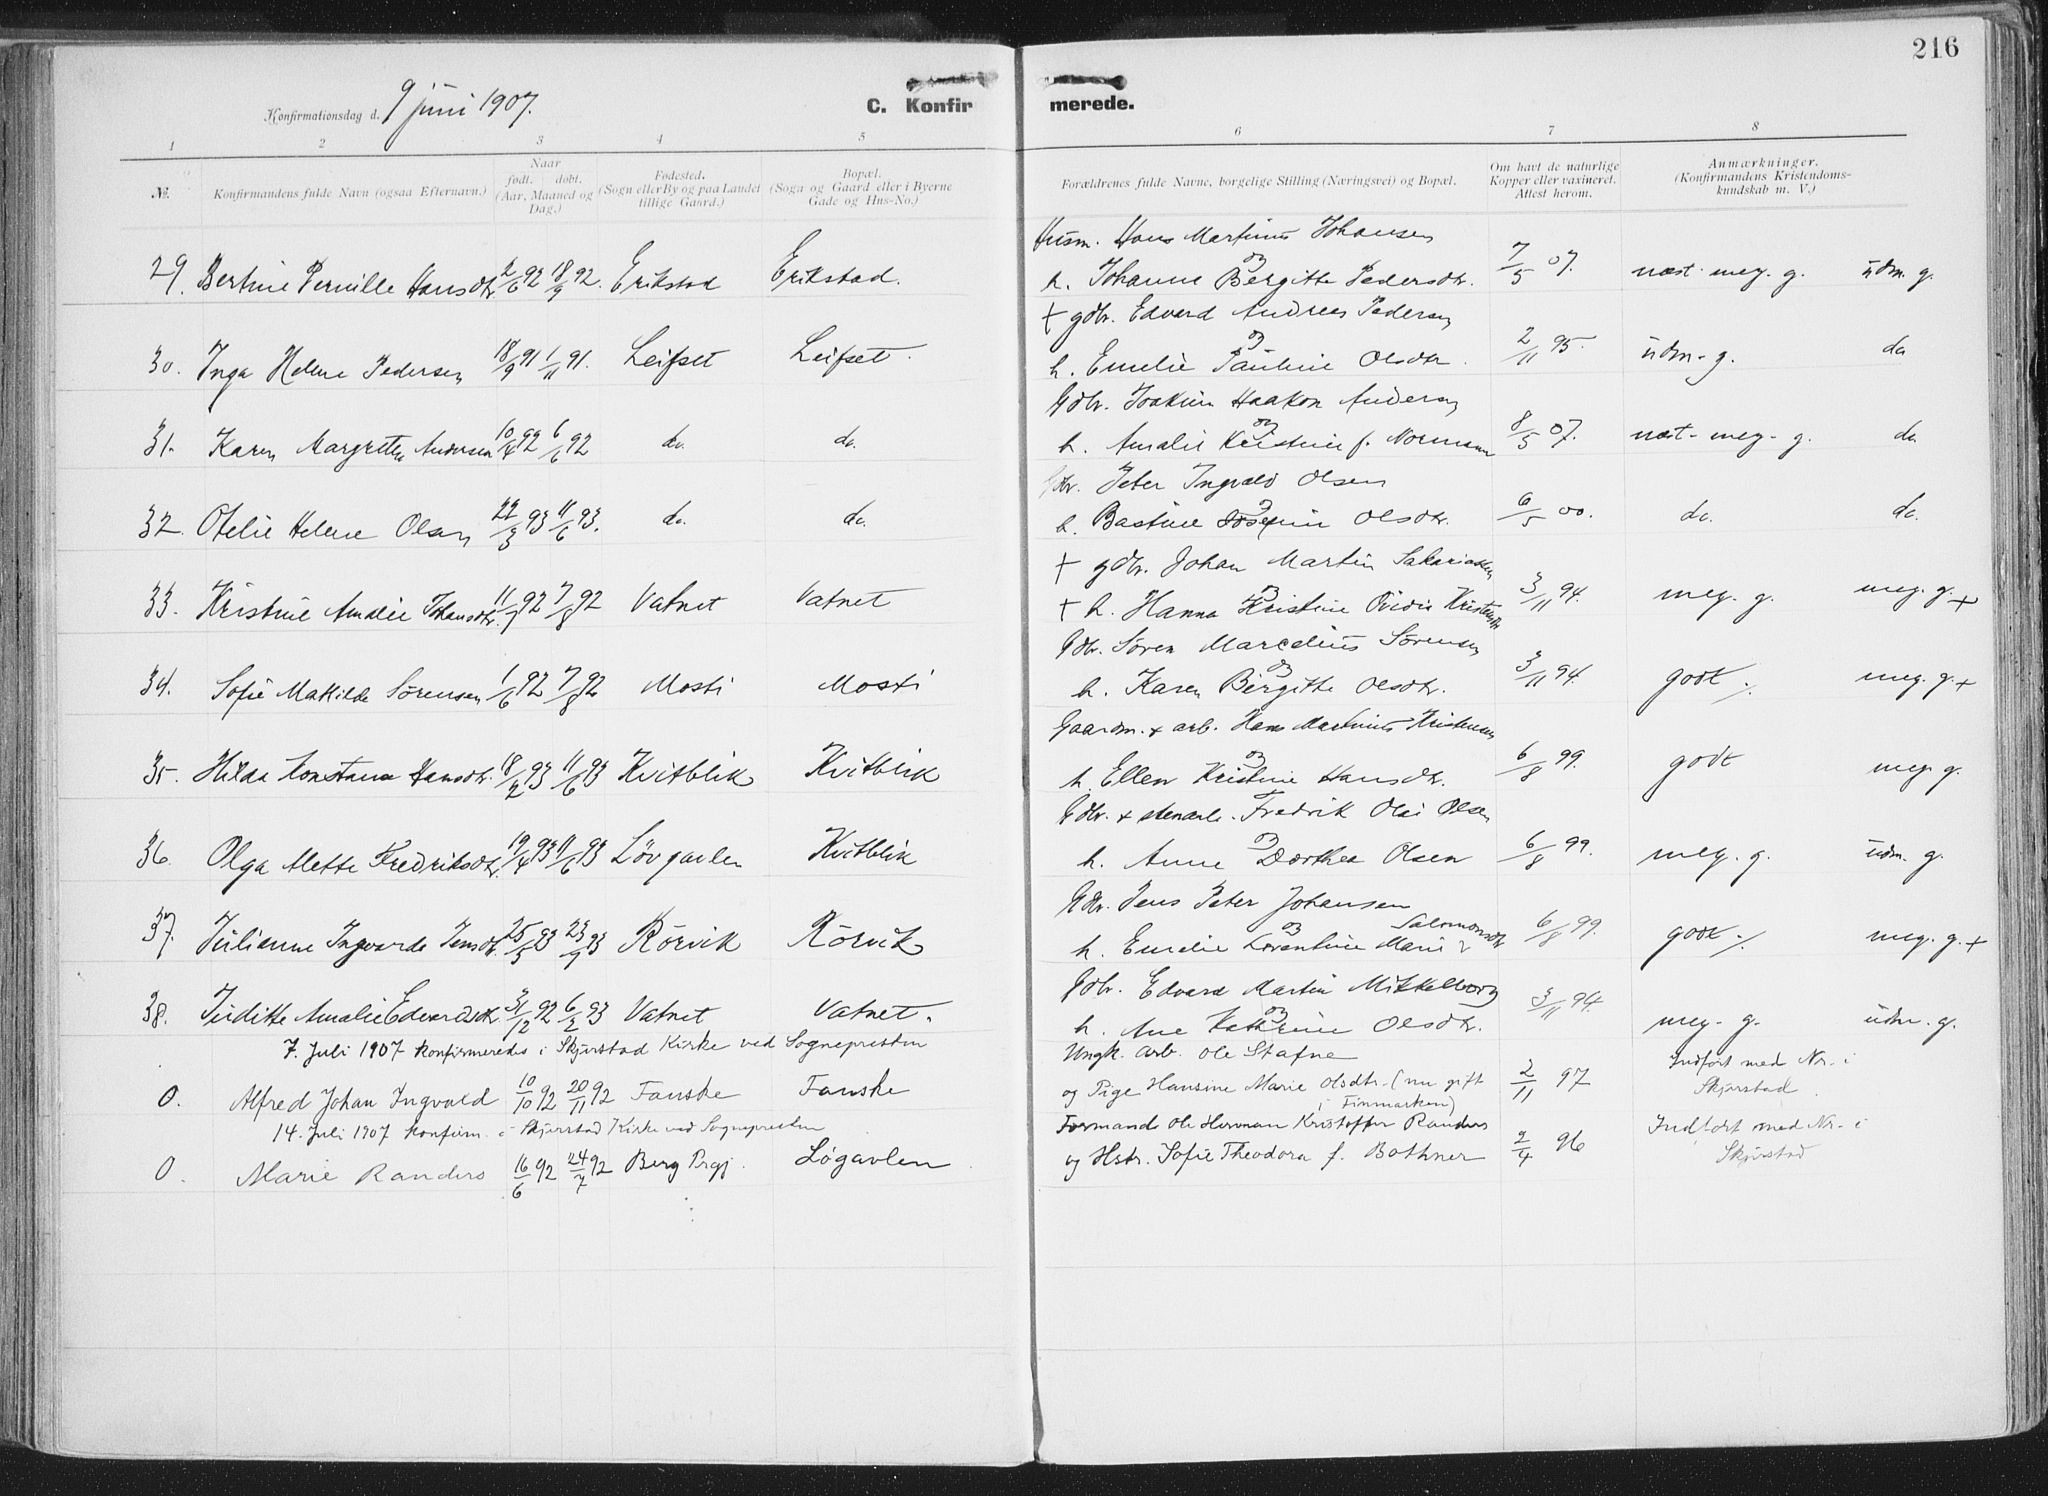 216
Konfirmationsdag d. 9 juni 1907. C. Konfirmerede.
1 2 3 4 5 6 7 8
№. Konfirmandens fulde Navn (ogsaa Efternavn.) Naar født. døbt. (Aar, Maaned og Dag.) Fødested. (Sogn eller By og paa Landet tillige Gaard.) Bopæl. (Sogn og Gaard eller i Byerne Gade og Hus-No.) Forældrenes fulde Navne, borgelige Stilling (Næringsvei) og Bopæl. Om havt de naturlige Kopper eller vaxineret. Attest herom. Anmærkninger. (Konfirmandens Kristendomskundskab m. V.)
Husm. Hans Martinus Johansen
29. Bertine Pernille Hansdtr. 2/6 92 18/9 92. Erikstad Erikstad. og h. Johanne Bergitte Pedersdtr. 7/5 07. næst. meg. g. üdm. g.
+ gdbr. Edvard Andreas Pedersen
30. Inga Helene Pedersen 18/9 91 1/11 91. Leifset Leifset. og h. Emelie Pauline Olsdtr. 2/11 95. üdm. g. do
Gdbr. Joakim Haakon Andersen
31. Karen Margrethe Andersen 10/4 92 6/6 92 do. do. og h. Amalie Kristine f. Normann 8/5 07. næst. meg. g. do
Gdbr. Peter Ingvald Olsen
32. Otelie Helene Olsen 22/3 93 11/6 93. do. do. og h. Bastine Josefine Olsdtr. 6/5 00. do. do.
+ gdbr. Johan Martin Sakariassen
33. Kristine Amalie Johansdtr. 11/7 92 7/8 92 Vatnet Vatnet og + h. Hanna Kristine 3/11 94. meg. g. meg. g. +
Gdbr. Søren Marcelius Sørensen
34. Sofie Matilde Sørensen 1/6 92 7/8 92 Mosti Mosti og h. Karen Birgitte Olsdtr. 3/11 94. godt meg. g. +
Gaardm. + arb. Hans Martinus Kristensen
35. Hilda Konstance Hansdtr. 18/2 93 11/6 93 Kvitblik Kvitblik og h. Ellen Kristine Hansdtr. 6/8 99. godt meg. g.
Gdbr. + stenarb. Fredrik Olai Olsen
36. Olga Mette Fredriksdtr. 19/4 93 11/6 93 Løvgavlen Kvitblik og h. Anne Dorthea Olsen 6/8 99. meg. g. üdm. g.
Gdbr. Jens Peter Johansen
37. Julianne Ingvarda Jensdtr. 25/5 93 23/9 93 Rörvik Rörvik og h. Emelie Lorentine Marie Salomonsdtr 6/8 99. godt meg. g. +
Gdbr. Edvard Martin Mikkelborg
38. Juditte Amalie Edvardsdtr. 31/12 92 6/2 93 Vatnet Vatnet. og h. Ane Katrine Olsdtr. 3/11 94. meg. g. üdm. g.
7. Juli 1907 konfirmeredes i Skjerstad Kirke ved Sognepresten Ungk. arb. Ole Stafne Indført med Nr. i
0. Alfred Johan Ingvald 10/10 92 20/11 92 Fauske Fauske og Pige Hansine Marie Olsdtr. (nu gift 2/11 97 Skjerstad.
i Finmarken)
14. Juli 1907 konfirm. i Skjerstad Kirke ved Sognepresten Formand Ole Herman Kristoffer Randers Indført med Nr. i
0. Marie Randers 16/6 92 24/7 92 Berg Prgj. Løgavlen og Hstr. Sofie Theodora f. Bothner 2/4 96 Skjerstad